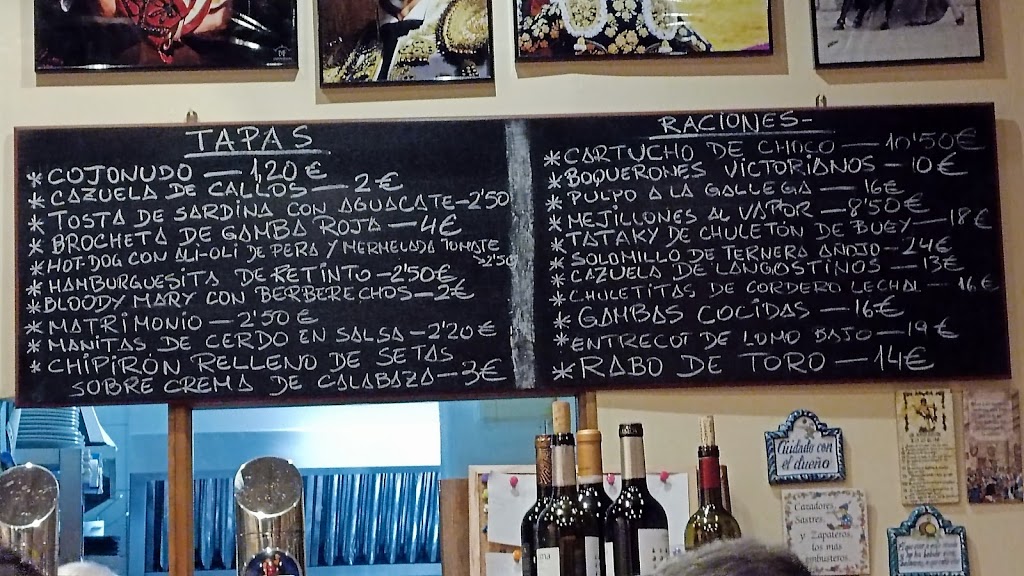 TAPAS
* COJONUDO — 1,20 €
* CAZUELA DE CALLOS — 2 €
* TOSTA DE SARDINA CON AGUACATE — 2'50
* BROCHETA DE GAMBA ROJA — 4€
* HOT-DOG CON ALI-OLI DE PERA Y MERMELADA TOMATE 2'50
* HAMBURGUESITA DE RETINTO — 2'50€
* BLOODY MARY CON BERBERECHOS — 2€
* MATRIMONIO — 2'50 €
* MANITAS DE CERDO EN SALSA — 2'20 €
* CHIPIRÓN RELLENO DE SETAS
SOBRE CREMA DE CALABAZA — 3€
RACIONES-
* CARTUCHO DE CHOCO — 10'50€
* BOQUERONES VICTORIANOS — 10€
* PULPO A LA GALLEGA — 16€
* MEJILLONES AL VAPOR — 8'50€
* TATAKY DE CHULETÓN DE BUEY — 18€
* SOLOMILLO DE TERNERA AÑOJO — 24€
* CAZUELA DE LANGOSTINOS — 13€
* CHULETITAS DE CORDERO LECHAL — 16€
* GAMBAS COCIDAS — 16€
* ENTRECOT DE LOMO BAJO — 19€
* RABO DE TORO — 14€
Cuidado con
el dueño
Cazadores
Sastres,
y Zapateros,
los más
embusteros.